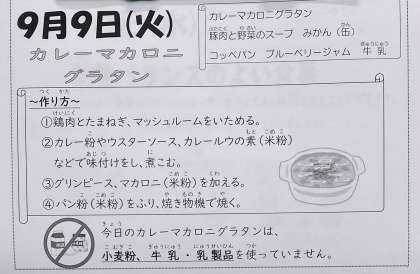 9月9日(火)
カレーマカロニ
グラタン
カレーマカロニグラタン
豚肉と野菜のスープ みかん(缶)
コッペパン ブルーベリージャム 牛乳
～作り方～
①鶏肉とたまねぎ、マッシュルームをいためる。
②カレー粉やウスターソース、カレールウの素(米粉)
などで味付けをし、煮こむ。
③グリンピース、マカロニ(米粉)を加える。
④パン粉(米粉)をふり、焼き物機で焼く。
今日のカレーマカロニグラタンは、
小麦粉、牛乳・乳製品を使っていません。